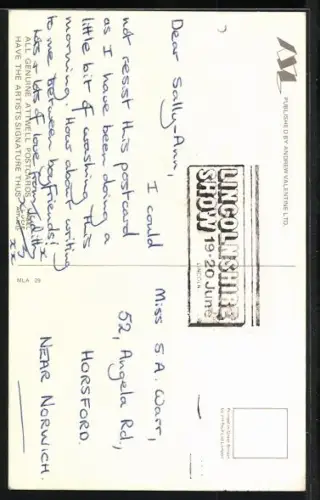 PUBLISHED BY ANDREW VALENTINE LTD.
Dear Sally-Ann,
I could
not resist this postcard
as I have been doing a
little bit of washing this
morning. How about writing
to me between boyfriends!
lots of love from Judith
xx
ALL GENUINE ATTWELL POSTCARDS
HAVE THE ARTISTS SIGNATURE THUS
MLA 29
LINCOLNSHIRE
SHOW 19-20 June
LINCOLN
Miss S.A. Warr,
52, Angela Rd.,
HORSFORD.
NEAR NORWICH.
Printed in Great Britain